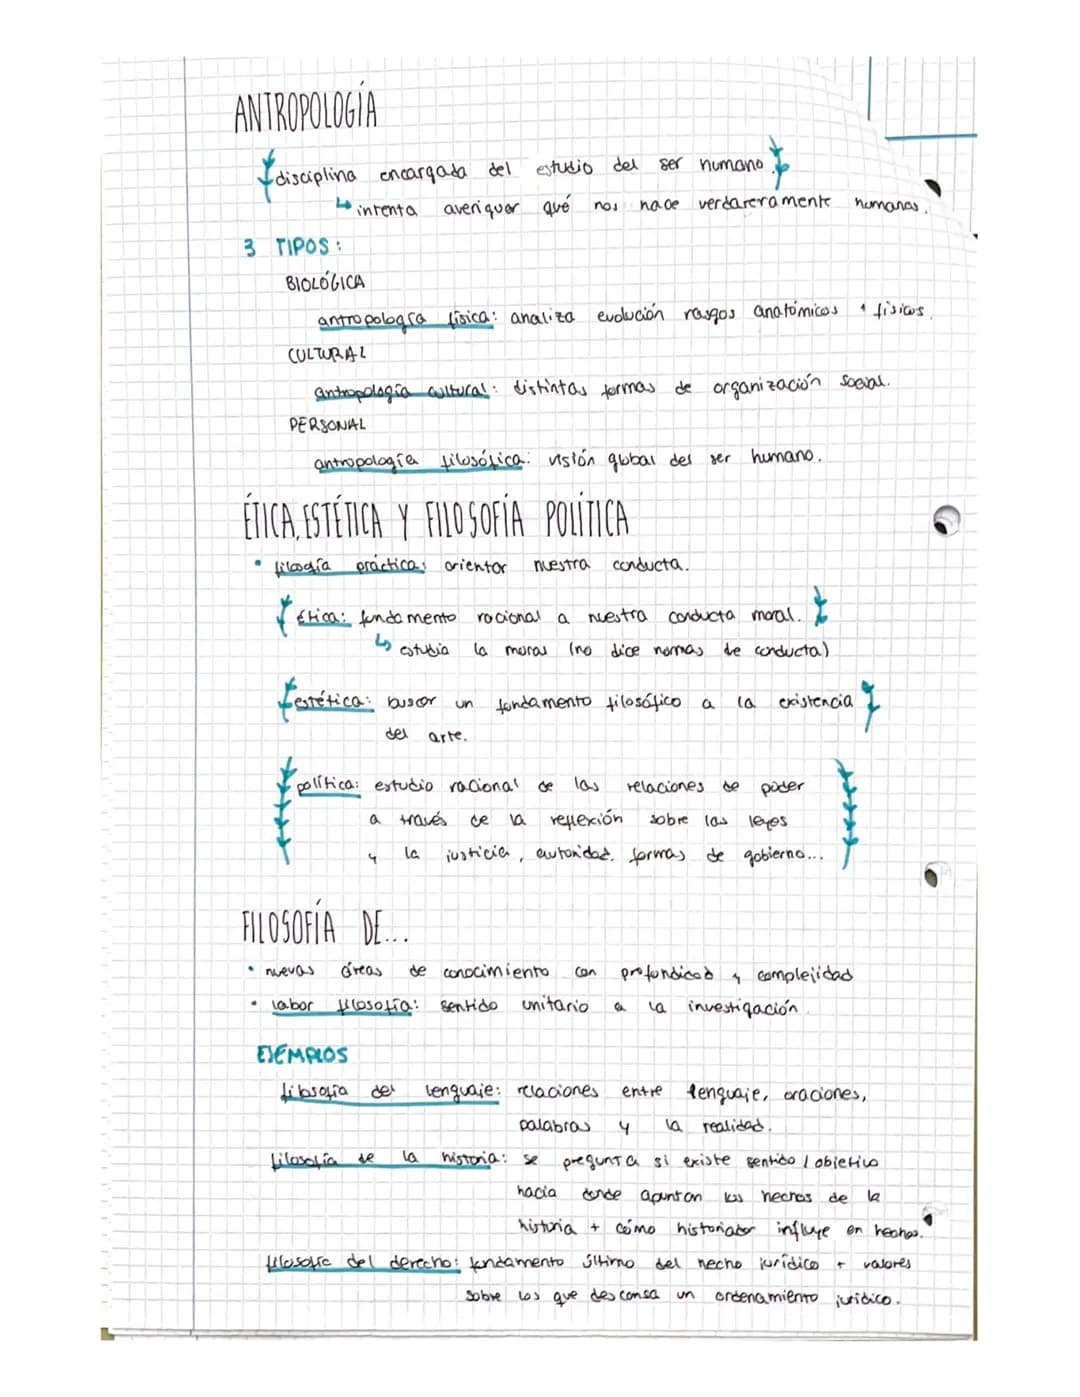 ANTROPOLOGÍA
disciplina encargada del estudio del ser humano.
↳ intenta averiguar qué nos hace verdareramente humanos.
3 TIPOS:
BIOLÓGICA
antropología física: analiza evolución rasgos anatómicos y físicos.
CULTURAL
antropología cultural: distintas formas de organización social.
PERSONAL
antropología filosófica: visión global del ser humano.
ÉTICA, ESTÉTICA Y FILOSOFÍA POLÍTICA
• filosofía práctica: orientar nuestra conducta.
Ética: fundamento racional a nuestra conducta moral.
↳ estudia la moral (no dice normas de conducta)
estética: buscar un fundamento filosófico a la existencia
del arte.
política: estudio racional de las relaciones de poder
a través de la reflexión sobre las leyes
y la justicia, autoridad. formas de gobierno...
FILOSOFÍA DE...
• nuevas áreas de conocimiento con profundidad y complejidad
• labor filosofía: sentido unitario a la investigación.
EJEMPLOS
filosofía del lenguaje: relaciones entre lenguaje, oraciones,
palabras y la realidad.
filosofía de la historia: se pregunta si existe sentido / objetivo
hacia donde apuntan los hechos de la
historia + cómo historiador influye en hechos.
filosofía del derecho: fundamento último del hecho jurídico + valores
sobre los que descansa un ordenamiento jurídico.